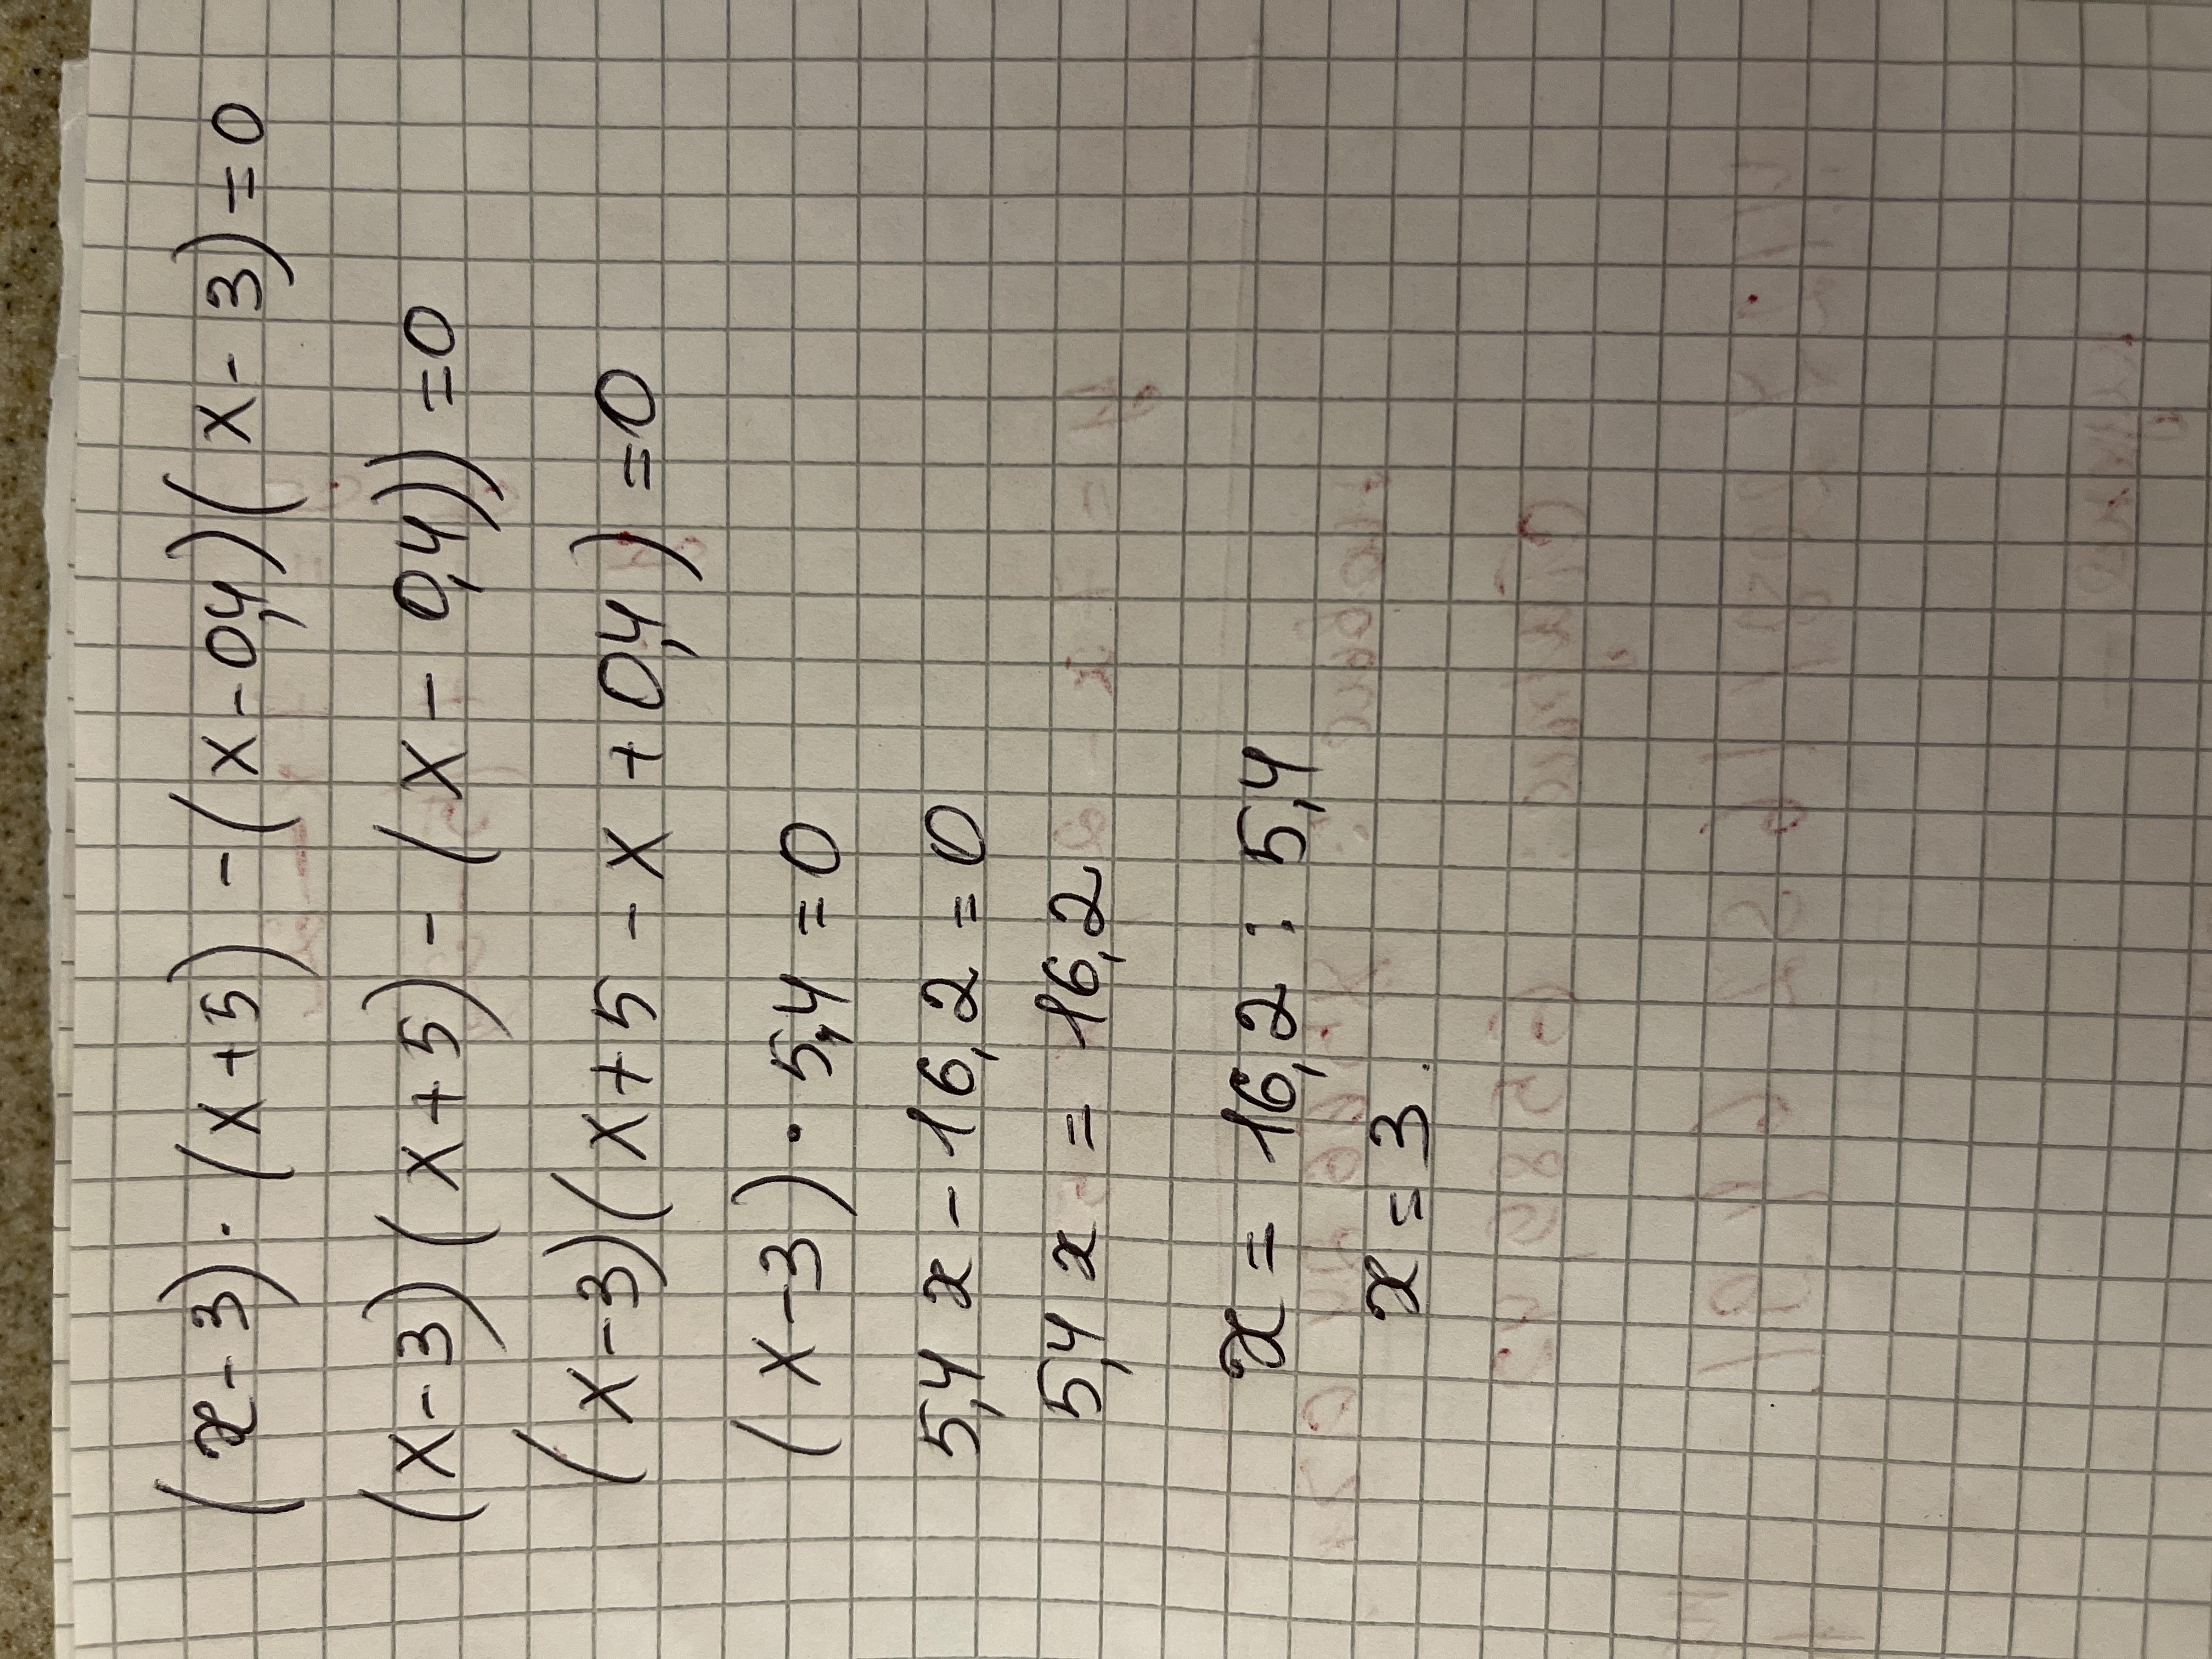 (x-3)·(x+5)-(x-0,4)(x-3)=0
(x-3)(x+5)-(x-0,4))=0
(x-3)(x+5-x+0,4)=0
(x-3)·5,4=0
5,4x-16,2=0
5,4x=16,2
x=16,2:5,4
x=3